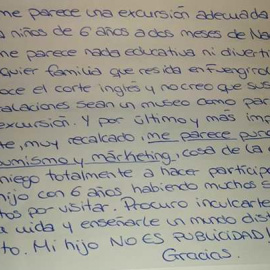 me parece una excursión adecuada
a niños de 6 años a dos meses de Na
me parece nada educativa ni diverti
quier familia que resida en Fuengirol
oce el corte inglés y no creo que sus
alaciones sean un museo como par
excursión. Y por último y más imp
te, muy recalcado, me parece pur
sumismo y márketing, cosa de la
niego totalmente a hacer partícip
hijo con 6 años habiendo muchos s
tos por visitar. Procuro inculcarle
a vida y enseñarle un mundo dis
to. Mi hijo NO ES PUBLICIDAD
Gracias.